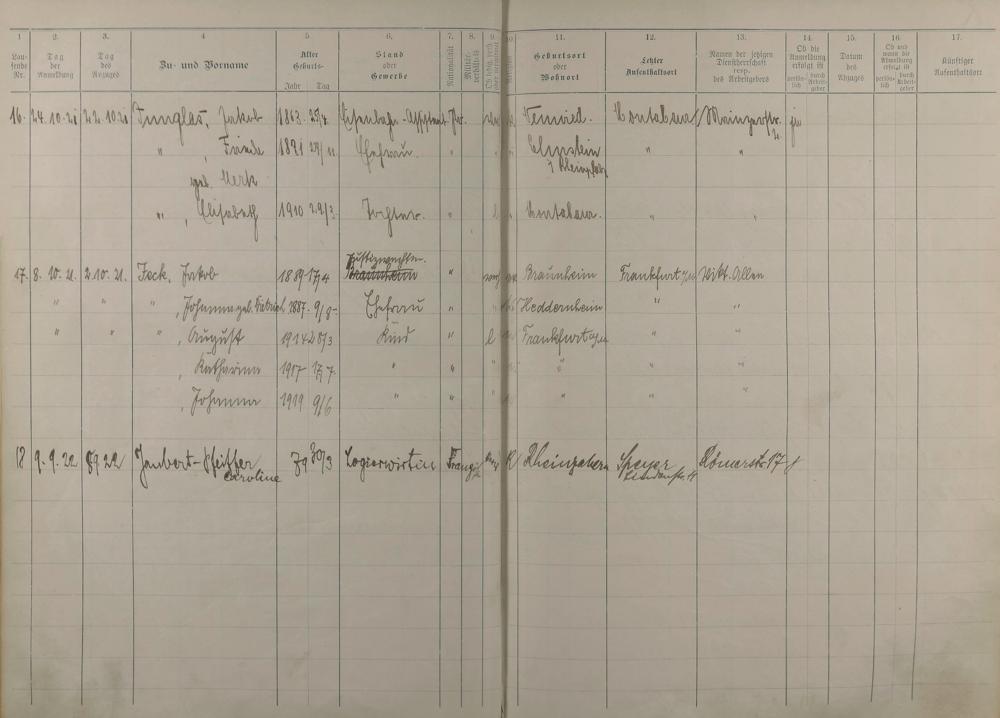 1 2. 3. 4 5. 6. 7. 8. 9. 10. 11. 12. 13. 14. 15. 16. 17.
Laufende Nr. Tag der Anmeldung Tag des Anzuges Zu- und Vorname Alter Geburts- Jahr Tag Stand oder Gewerbe Nationalität Geburtsort oder Wohnort Letzter Aufenthaltsort Namen der jetzigen Dienstherrschaft resp. des Arbeitgebers Ob die Anmeldung erfolgt ist persönlich durch Arbeitgeber Datum des Abzuges Ob und wann die Abmeldung erfolgt ist persönlich durch Arbeitgeber Künftiger Aufenthaltsort
16. 24.10.21 22.10.21 Junglas, Jakob 1863 Eisenbahn-Assistent Pr. Neuwied. Montabaur Mainzerstr.
" , Frieda 1891 Ehefrau. " Elmstein " "
geb. Merk i Rheinpfalz
" , Elisabeth 1910 29/3 Tochter. " l Montabaur. " "
17. 8.10.21. 2.10.21. Feck, Jakob 1889 17/4 " Braunheim Frankfurt a/M Vikt. Allee
" " " , Johanna geb. Dietrich 1887. 9/8 Ehefrau " Heddernheim " "
" " , August 1914 28/3 Kind " l Frankfurt a/M " "
, Katharina 1917 17/7. " " " " "
, Johanna 1919 9/6 " " " "
18 9.9.22 8.9.22 Jaubert-Pfeiffer 79 30/3 Logierwirtin K Rheinzabern Speyer Römerstr. 17
Caroline